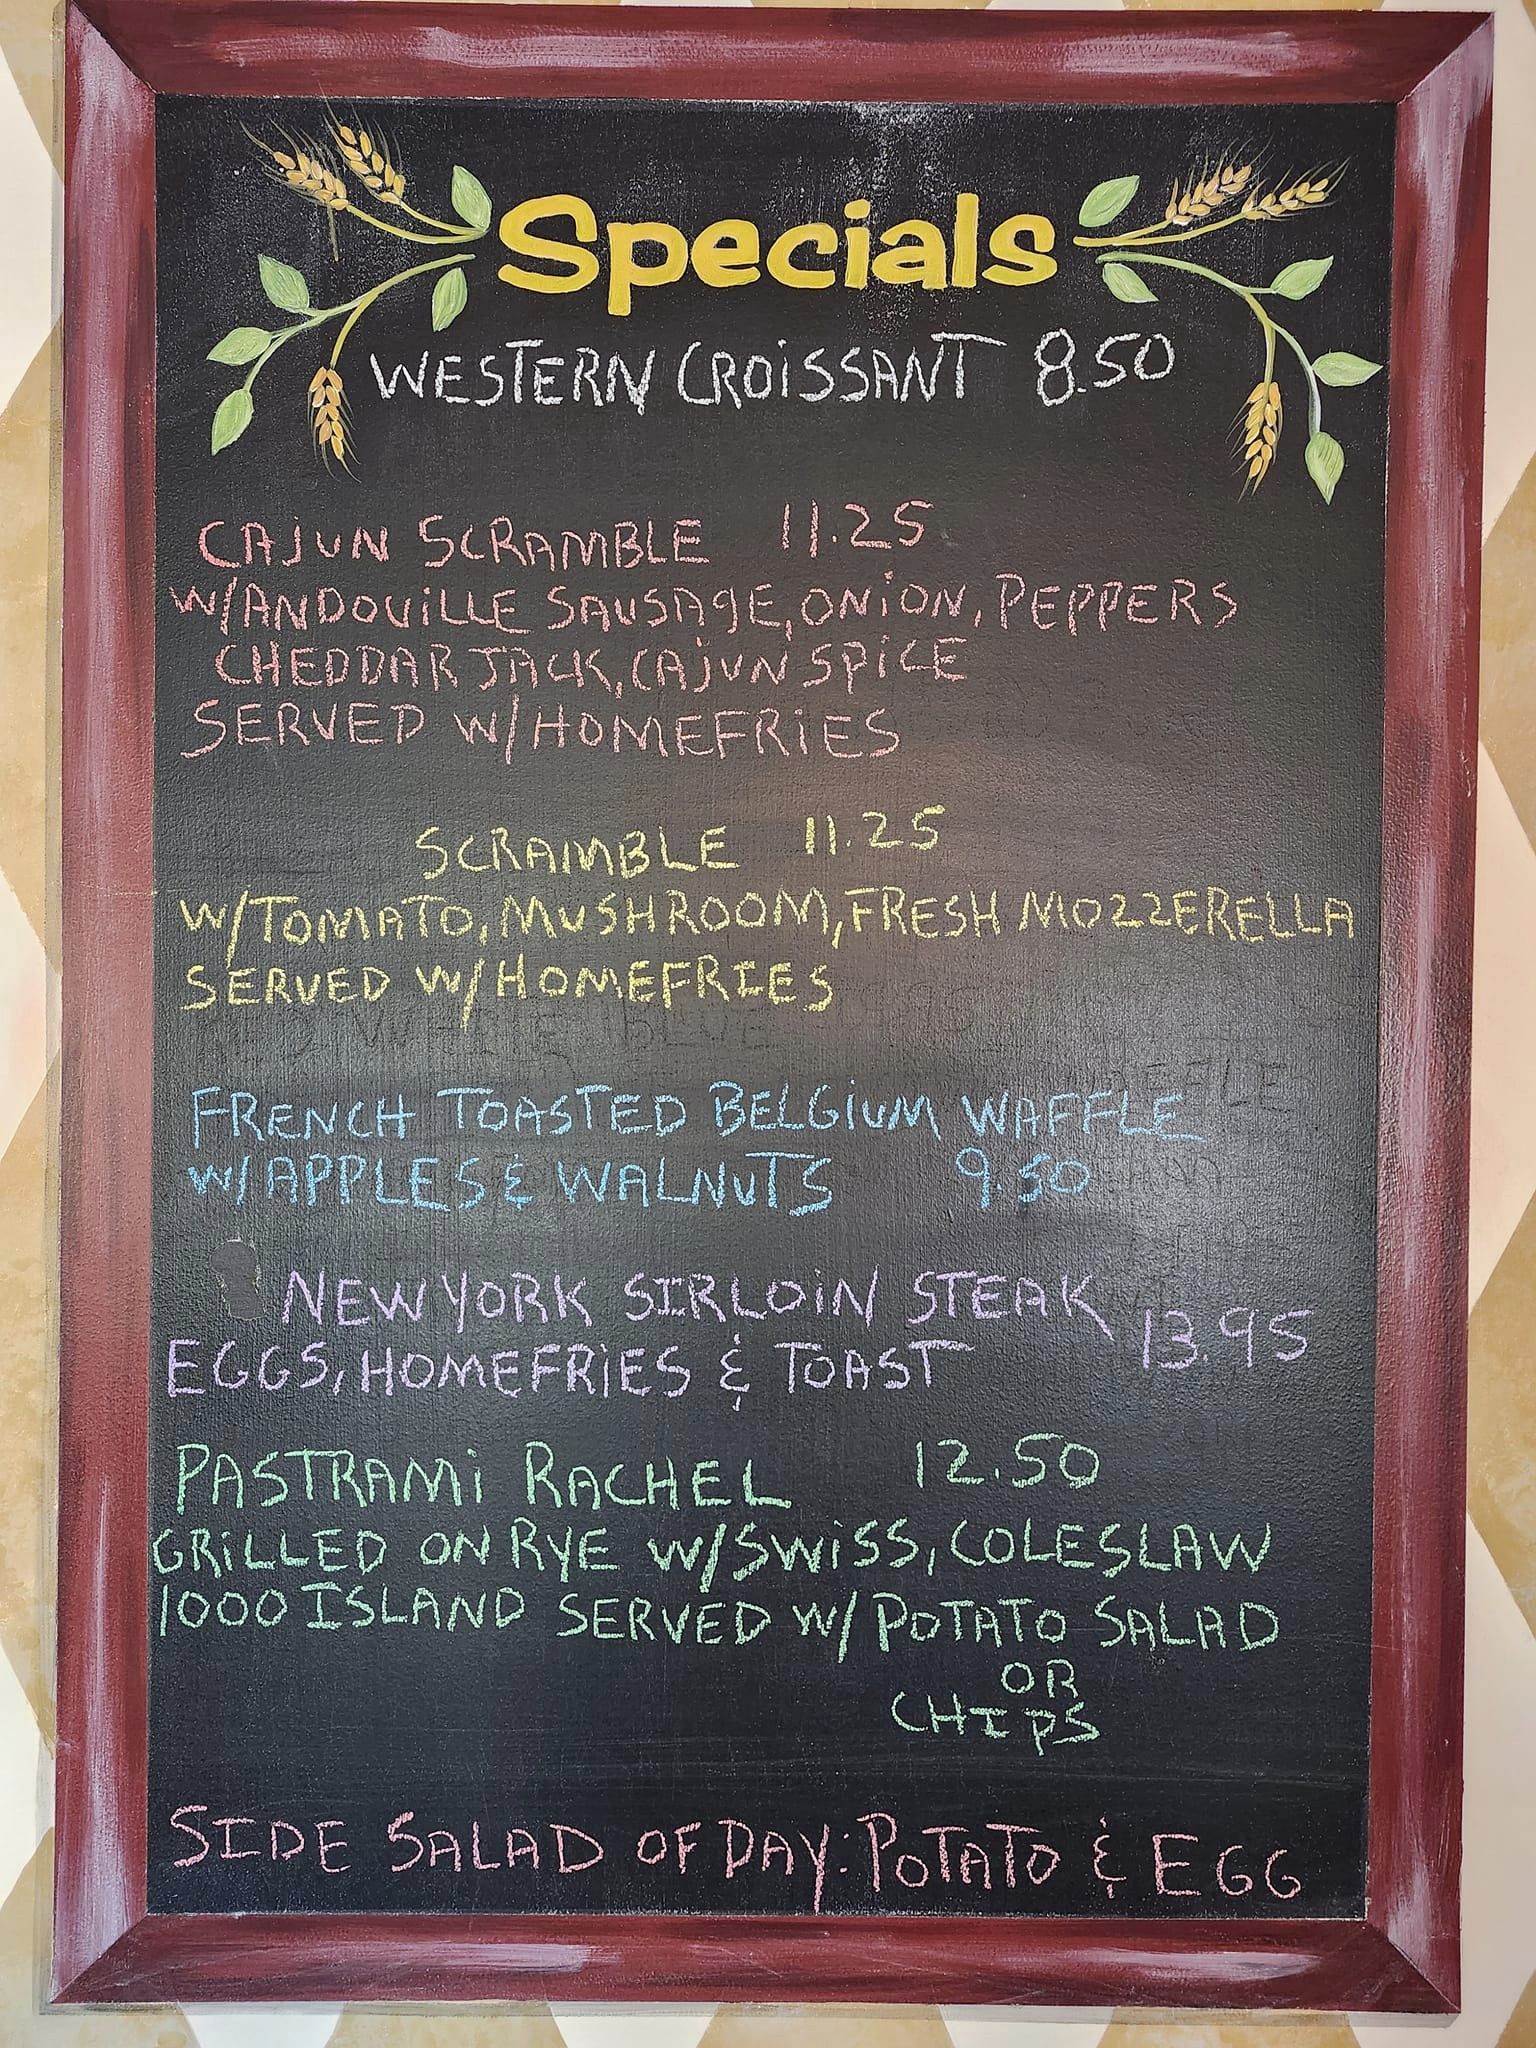 Specials
WESTERN CROISSANT 8.50
CAJUN SCRAMBLE 11.25
W/ANDOUILLE SAUSAGE, ONION, PEPPERS
CHEDDAR JACK, CAJUN SPICE
SERVED W/HOMEFRIES
SCRAMBLE 11.25
W/TOMATO, MUSHROOM, FRESH MOZZERELLA
SERVED W/HOMEFRIES
FRENCH TOASTED BELGIUM WAFFLE
W/APPLES & WALNUTS 9.50
NEW YORK SIRLOIN STEAK 13 95
EGGS, HOMEFRIES & TOAST
PASTRAMI RACHEL 12.50
GRILLED ON RYE W/SWISS, COLESLAW
1000 ISLAND SERVED W/ POTATO SALAD
OR
CHIPS
SIDE SALAD OF DAY: POTATO & EGG